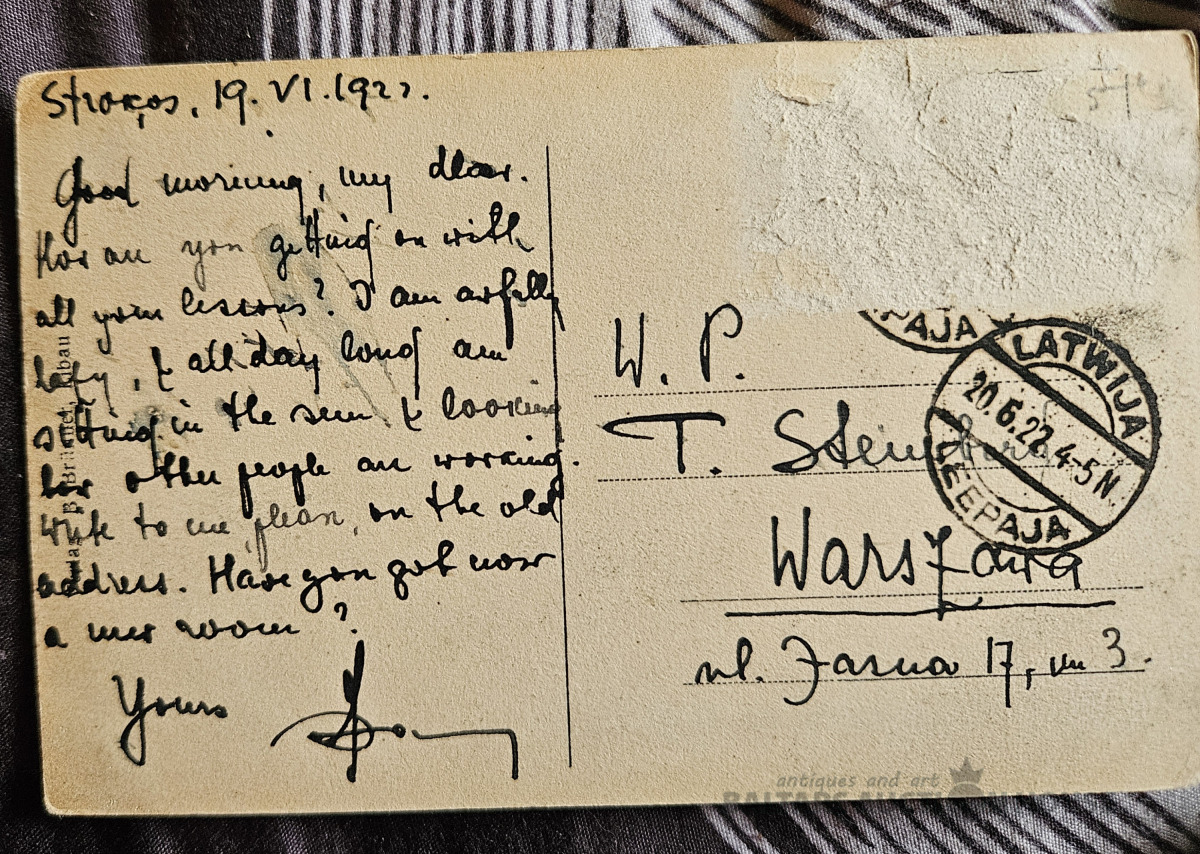 19. VI. 1922.
Good morning, my dear.
How are you getting on with
all your lessons? I am awfully
lazy, & all day long am
sitting in the sun & looking
how other people are working.
Write to me please, on the old
address. Have you got now
a new room?
Yours
W. P.
T.
Warszawa
ul. Jasna 17, m 3.
PAJA
LATWIJA
20.6.22 4-5N
LEEPAJA
antiques and art